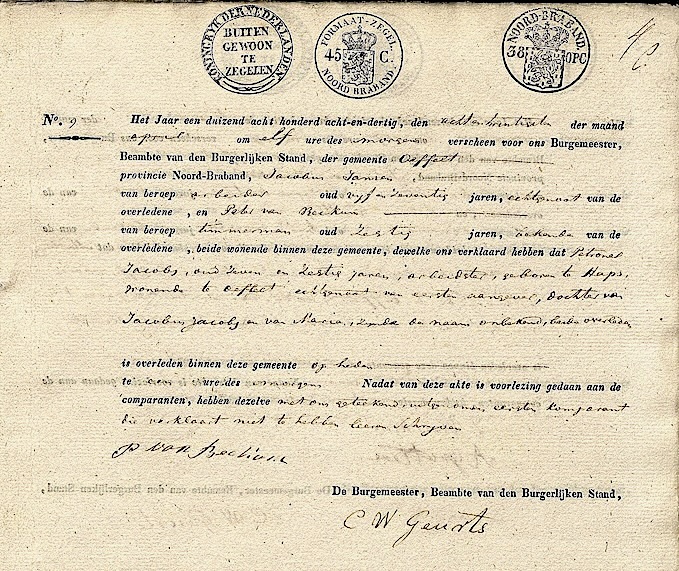 KONINGRYK DER NEDERLANDEN
BUITEN
GEWOON
TE
ZEGELEN
FORMAAT-ZEGEL.
45 C.
NOORD BRABAND
NOORD-BRABAND.
38 OPC
No. 9
Het Jaar een duizend acht honderd acht-en-dertig, den achtentwintigsten der maand
april om elf ure des morgens verscheen voor ons Burgemeester,
Beambte van den Burgerlijken Stand, der gemeente Oeffelt
provincie Noord-Braband, Jacobus Jansen
van beroep arbeider oud vijf en zeventig jaren, echtgenoot van de
overledene , en Peter van Beckum
van beroep timmerman oud Zestig jaren, bekende van de
overledene , beide wonende binnen deze gemeente, dewelke ons verklaard hebben dat Petronel
Jacobs, oud zeven en Zestig jaren, arbeidster, geboren te Haps
wonende te Oeffelt echtgenoot van eersten aangever, dochter van
Jacobus Jacobs en van Maria, zijnde de naam onbekend, beide overleden
is overleden binnen deze gemeente op heden
te ure des morgens Nadat van deze akte is voorlezing gedaan aan de
comparanten, hebben dezelve met ons geteekend, uitgenomen eersten komparant
die verklaart niet te hebben leeren Schryven
P van Beckum
De Burgemeester, Beambte van den Burgerlijken Stand,
C W Geurts